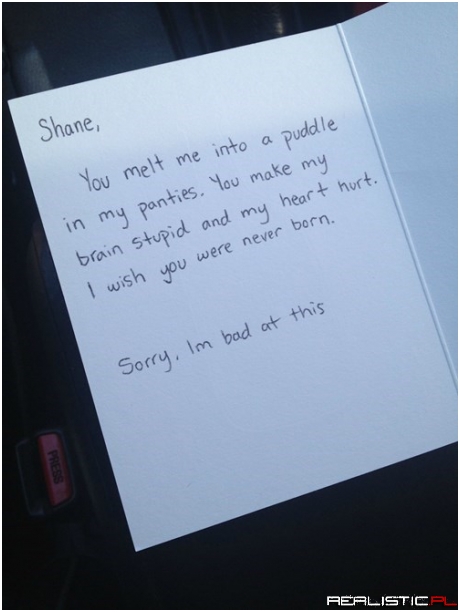 Shane,
You melt me into a puddle
in my panties. You make my
brain stupid and my heart hurt.
I wish you were never born.
Sorry, Im bad at this
PRESS
REALISTIC.PL